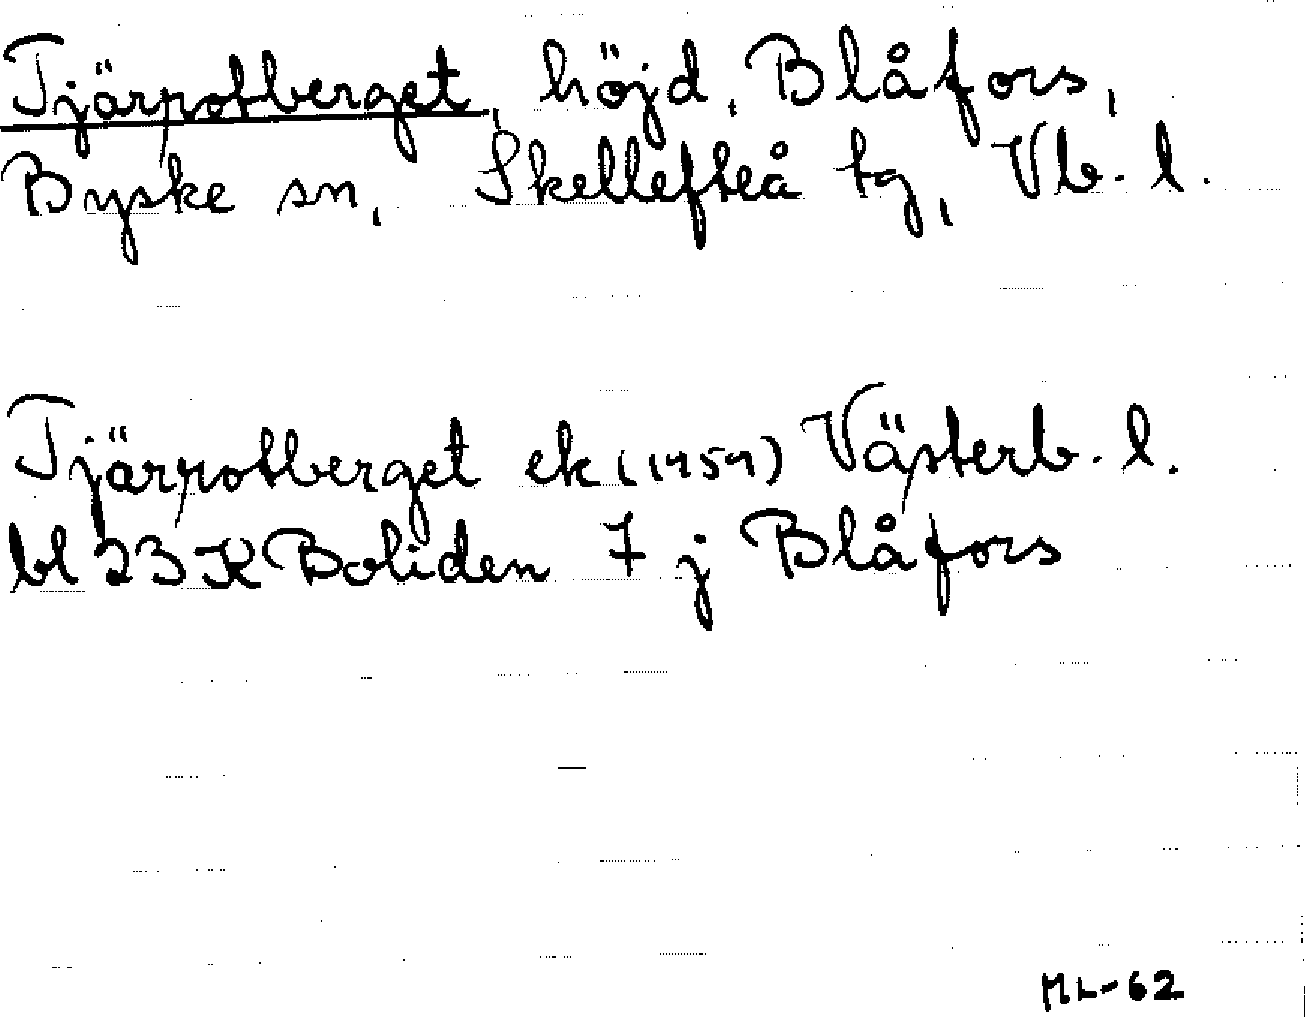 Tjärpotberget, höjd, Blåfors,
Byske sn, Skellefteå tg, Vb. l.
Tjärpotberget ek (1959) Västerb. l.
bl 23K Boliden 7 j Blåfors
ML-62